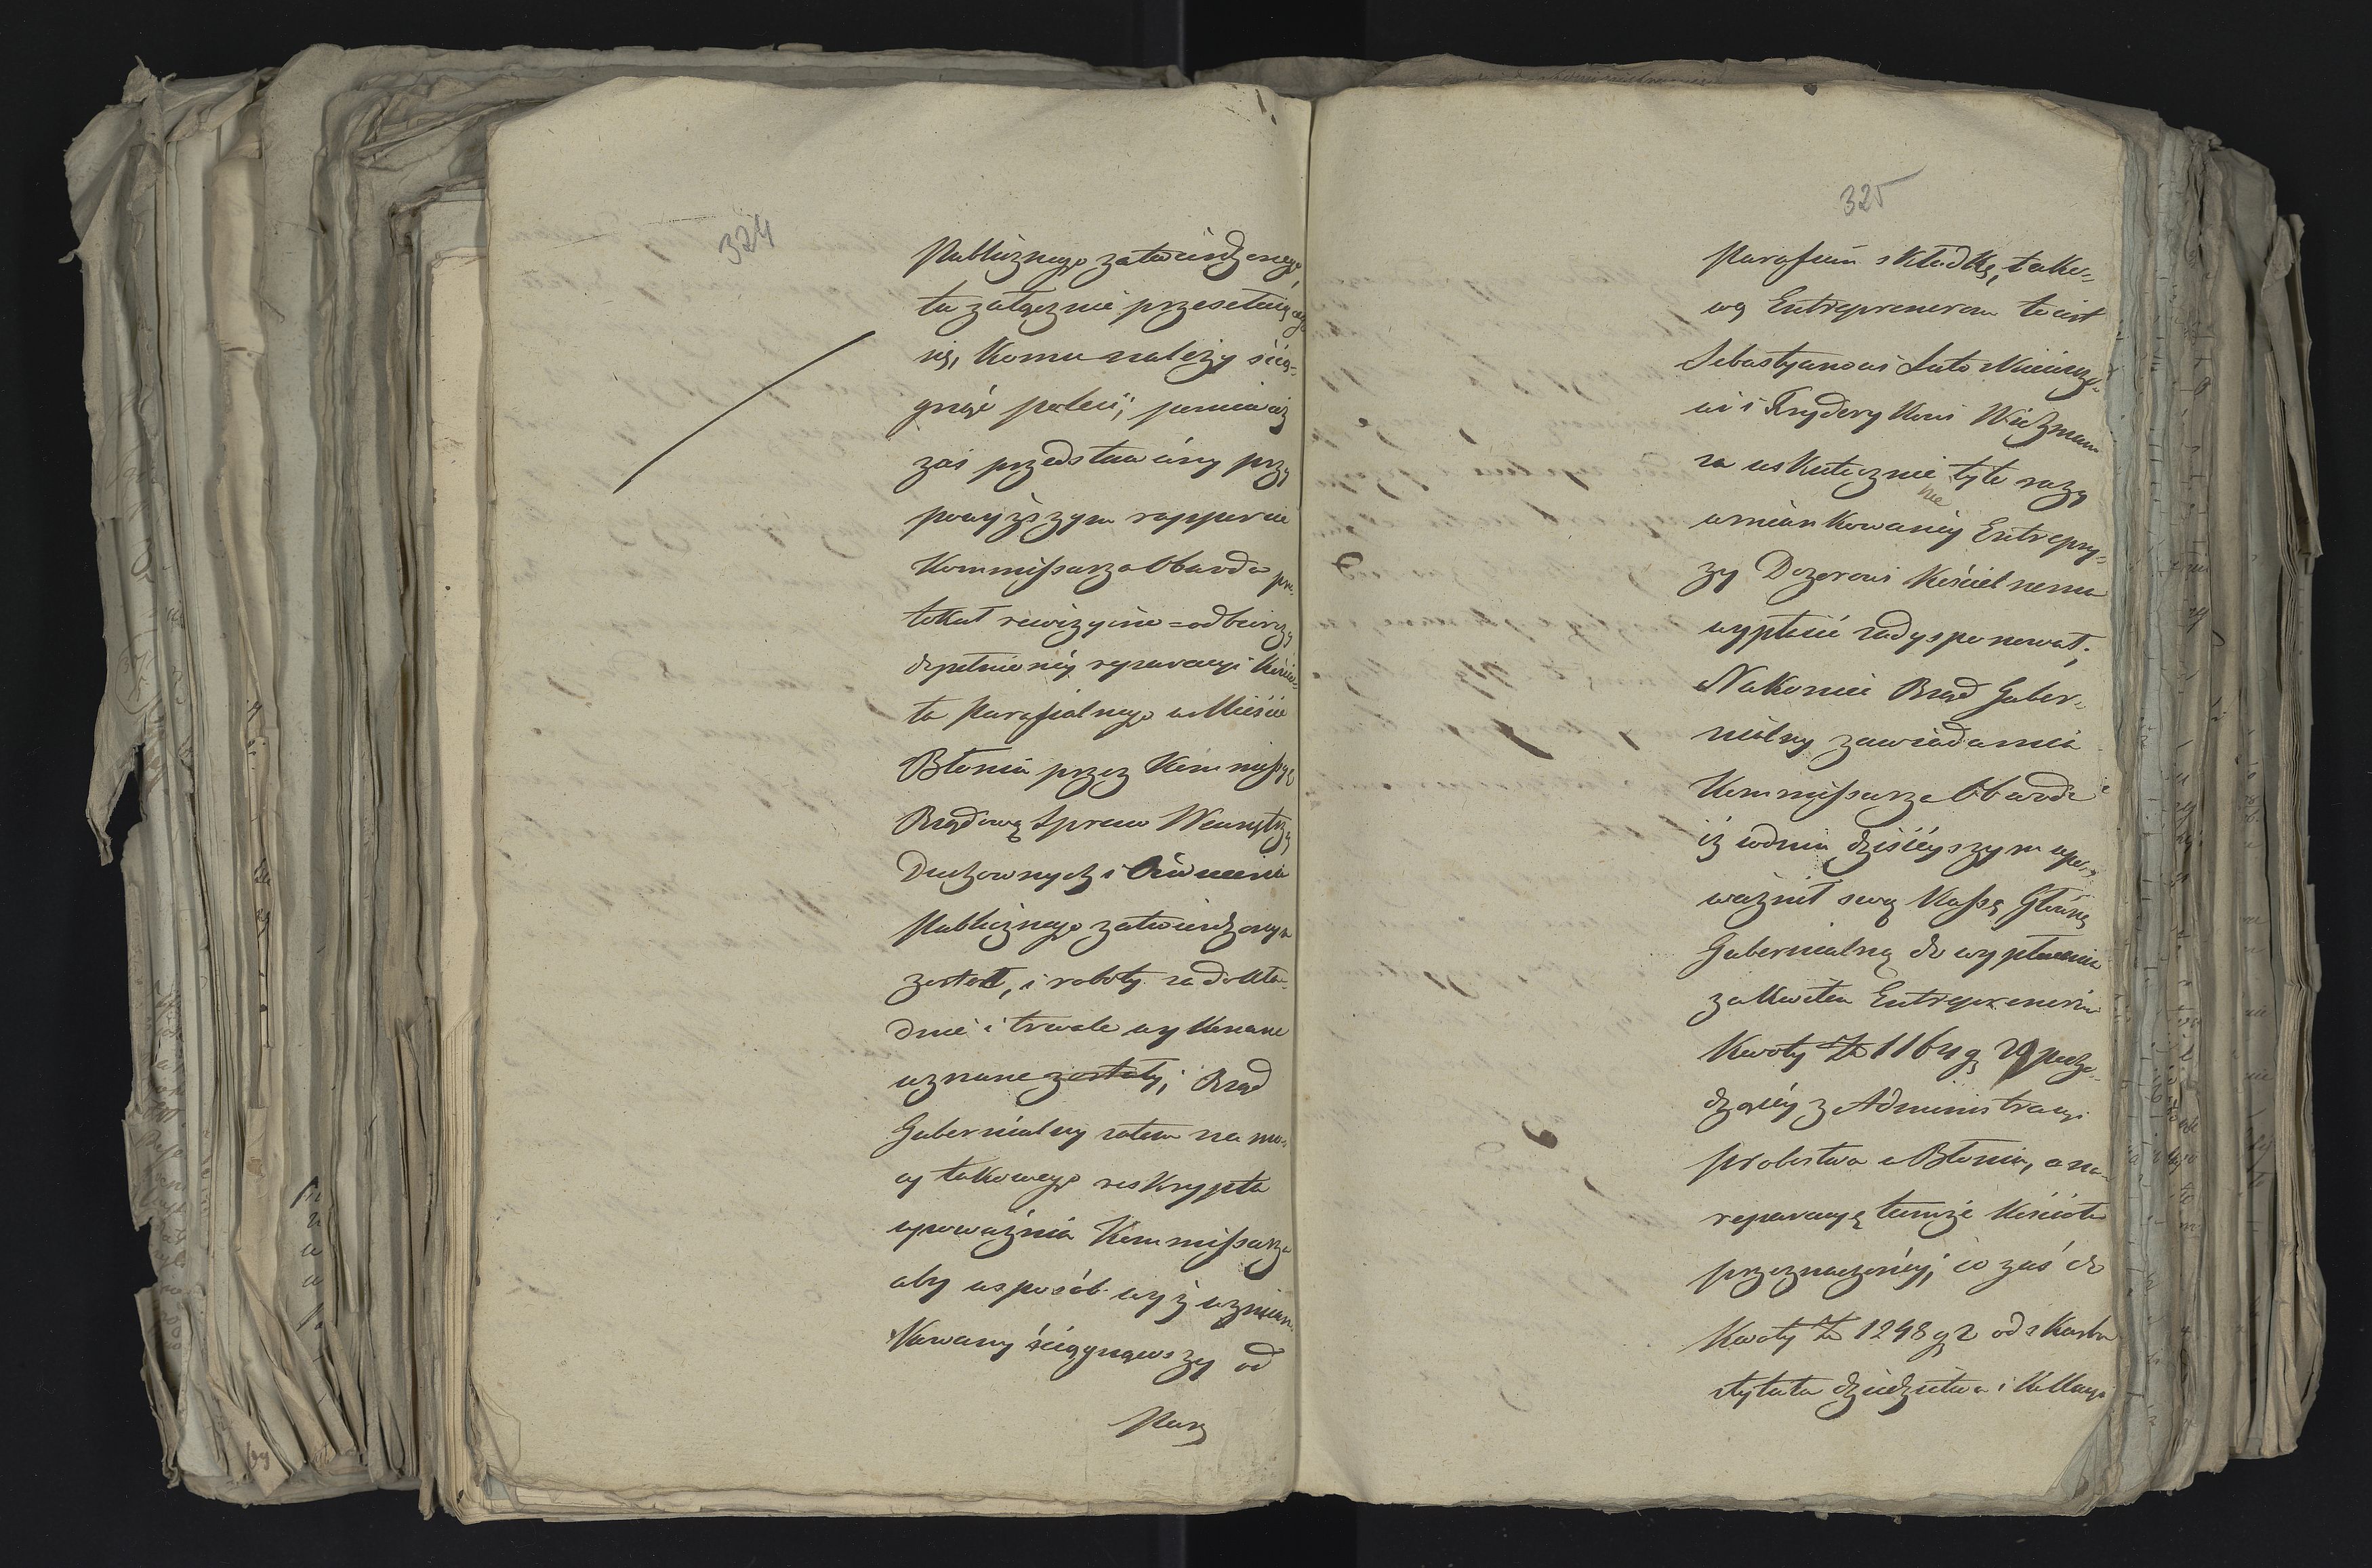 324
Publicznego zatwierdzonego,
tu załącznie przesełaiącego
się, komu należy ścią-
gnąć poleci; ponieważ
zaś przedstawiony przy
powyższym rapporcie
Kommissarza Obwodu pro-
tokuł rewizyino-odbiorczy
dopełnioney reparacyi Kościo-
ła Parafialnego w Mieście
Błoniu przez Kommissyę
Rządową Spraw Wewnętrz:
Duchownych i Oświecenia
Publicznego zatwierdzonym
został, i roboty za dokła-
dnie i trwale wykonane
uznane zostały; Rząd
Gubernialny zatem na mo-
cy takowego reskryptu
upoważnia Kommissarza
aby w sposób wyż wzmian-
kowany ściągnąwszy od
Par
325
Parafian składkę, tako-
wą Entreprenerom to iest
Sebastyanowi
wi i Fryderykowi
za uskutecznienie tyle razy
wmiankowaney Entrepry-
zy Dozorowi Kościelnemu
wypłacić zadysponował;
Nakoniec Rząd Guber-
nialny zawiadamia
Kommissarza Obwodu
iż w dniu dzisieyszym upo-
ważnił swą Kassę Główną
Gubernialną do wypłacenia
za kwitem Entreprenerów
Kwoty Zł 1164 g 29 pocho-
dzącey z Administracyi
probostwa w Błoniu, a na
reparacyą tamże Kościoła
przeznaczoney, co zaś do
Kwoty Zł 1248 g 2 od skarbu
z tytułu dziedzictwa i Kollacyi